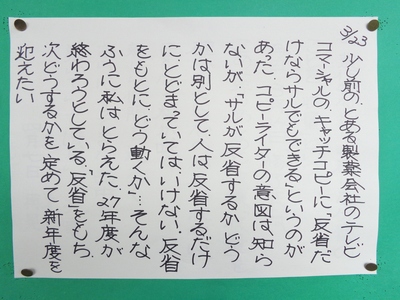 3/23 少し前の、とある製薬会社のテレビ
コマーシャルの、キャッチコピーに「反省だ
けならサルでもできる」というのが
あった。コピーライターの意図は、知ら
ないが、「サルが反省するかどう
かは別として、人は反省するだけ
に、とどまっていてはいけない。反省
をもとに、どう動くか…そんな
ふうに私はとらえた。27年度が
終わろうとしている。「反省」をもち、
次どうするかを定めて新年度を
迎えたい